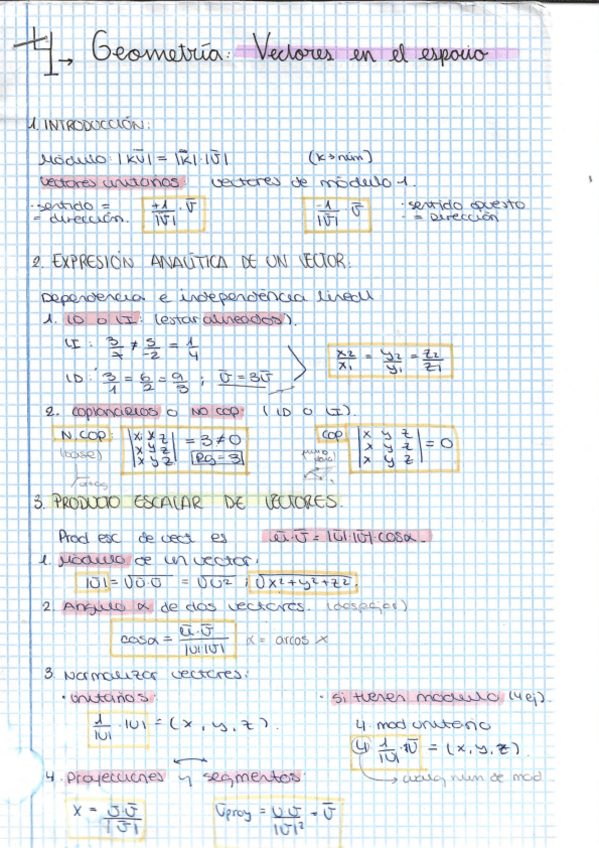 4→ Geometría: Vectores en el espacio
1. INTRODUCCIÓN:
Módulo: |kū| = |k|·|ū| (k→núm)
vectores unitarios vectores de módulo 1.
·sentido = +1/|ū| · ū -1/|ū| ū ·sentido opuesto
= dirección. · = dirección
2. EXPRESIÓN ANALÍTICA DE UN VECTOR:
Dependencia e independencia lineal
1. LD o LI: (estar alineados).
LI: 3/7 ≠ 5/-2 = 1/4
x2/x1 = y2/y1 = z2/z1
LD: 3/1 = 6/2 = 9/3 ; ū = 3ū
2. Coplanarios o NO COP: (LD o LI).
N.COP: |x y z| = 3 ≠ 0 COP |x y z| = 0
(base) |x y z| Rg = 3 |x y z|
|x y z| |x y z|
3. PRODUCTO ESCALAR DE VECTORES.
Prod esc de vect es ū·v̄ = |ū|·|v̄|·cosα.
1. Módulo de un vector:
|ū| = √ū·ū = √ū² ; √x²+y²+z².
2. Ángulo α de dos vectores. (despejar)
cosα = ū·v̄/|ū|·|v̄| α = arcos x
3. Normalizar vectores:
·unitarios: · Si tienes módulo (4 ej)
1/|ū| · |ū| = (x, y, z). 4 mod unitario
4 · 1/|ū| · ū = (x, y, z)
→ cualq num de mod
4. Proyecciones y segmentos:
x = ū·v̄/|v̄| ūproy = ū·v̄/|v̄|² · v̄